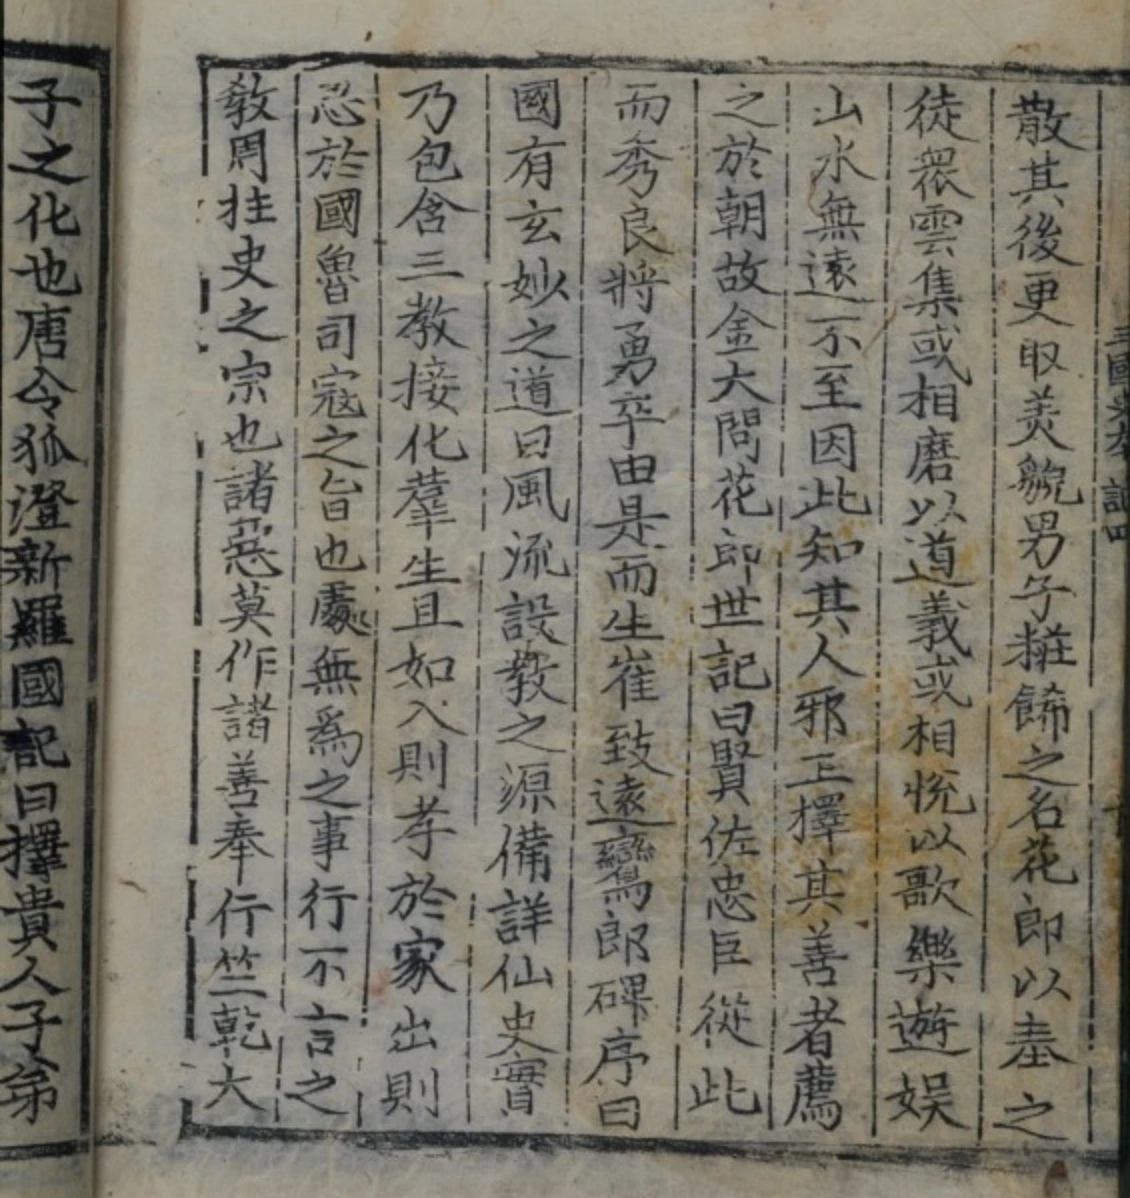 三國史本記四
散其後更取美貌男子粧餙之名花郎以奉之
徒衆雲集或相磨以道義或相悅以歌樂遊娱
山水無遠不至因此知其人邪正擇其善者薦
之於朝故金大問花郎世記曰賢佐忠臣從此
而秀良將勇卒由是而生崔致遠鸞郎碑序曰
國有玄妙之道曰風流設敎之源備詳仙史實
乃包含三教接化羣生且如入則孝於家出則
忠於國魯司寇之旨也處無爲之事行不言之
敎周柱史之宗也諸惡莫作諸善奉行竺乾大
子之化也唐令狐澄新羅國記曰擇貴人子弟